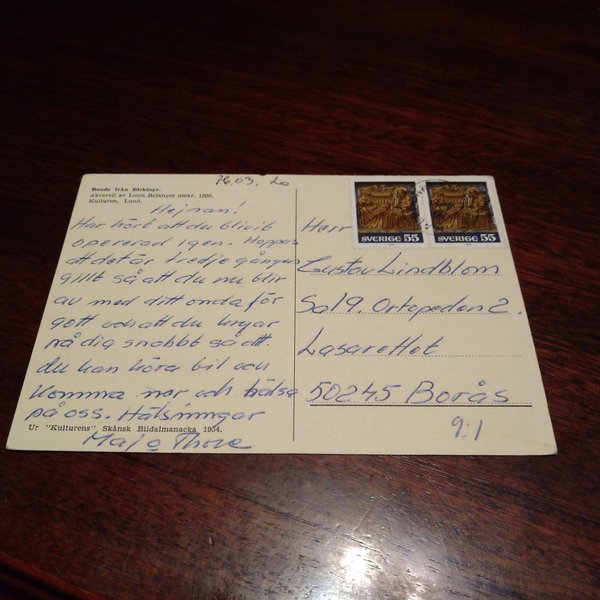 76.03.20
Bonde från Blekinge.
Akvarell av Louis Belanger omkr. 1800.
Kulturen, Lund.
Hejsan!
Har hört att du blivit
opererad igen. Hoppas
att det är tredje gången
gillt så att du nu blir
av med ditt onda för
gott och att du kryar
på dig snabbt så att
du kan köra bil och
komma ner och hälsa
på oss. Hälsningar
Ur "Kulturens" Skånsk Bildalmanacka 1954.
Maj o Thore
SVERIGE 55
SVERIGE 55
Herr
Gustav Lindblom
Sal 9. Ortopeden 2.
Lasarettet
50245 Borås
9:1